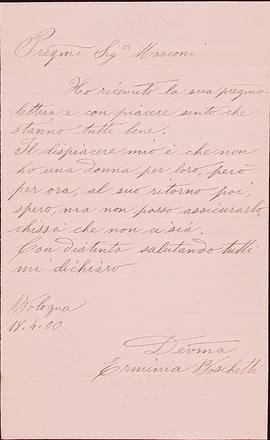 Pregmo Sigr Marconi
Ho ricevuto la sua pregma
lettera e con piacere sento che
stanno tutti bene.
Il dispiacere mio è che non
ho una donna per loro, però
per ora, al suo ritorno poi
spero, ma non posso assicurarlo,
chissà che non vi sia.
Con distinta salutando tutti
mi dichiaro
Bologna
18.4.00
Devma
Erminia Boschetti